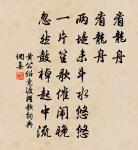 看龍舟
看龍舟
兩堤未斗水悠悠
一片笙歌催鬧晚
忽然鼓棹起中流
黃公紹竞渡棹歌詞典
綱集